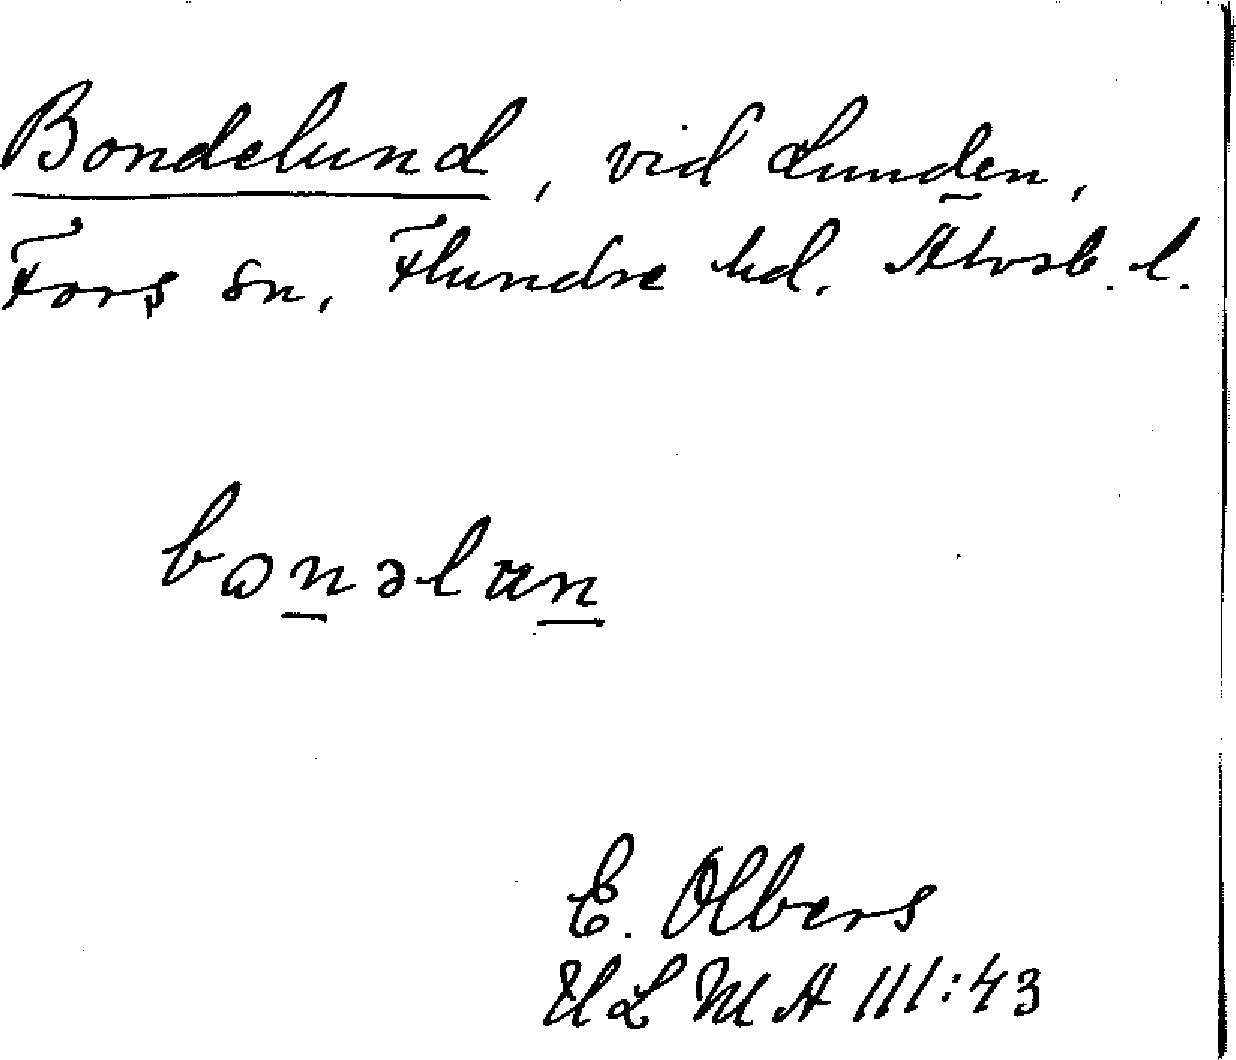 Bondelund, vid Lunden,
Fors sn, Flundre hd. Älvsb. l.
bɷnəlun
E. Olbers
ULMA III:43